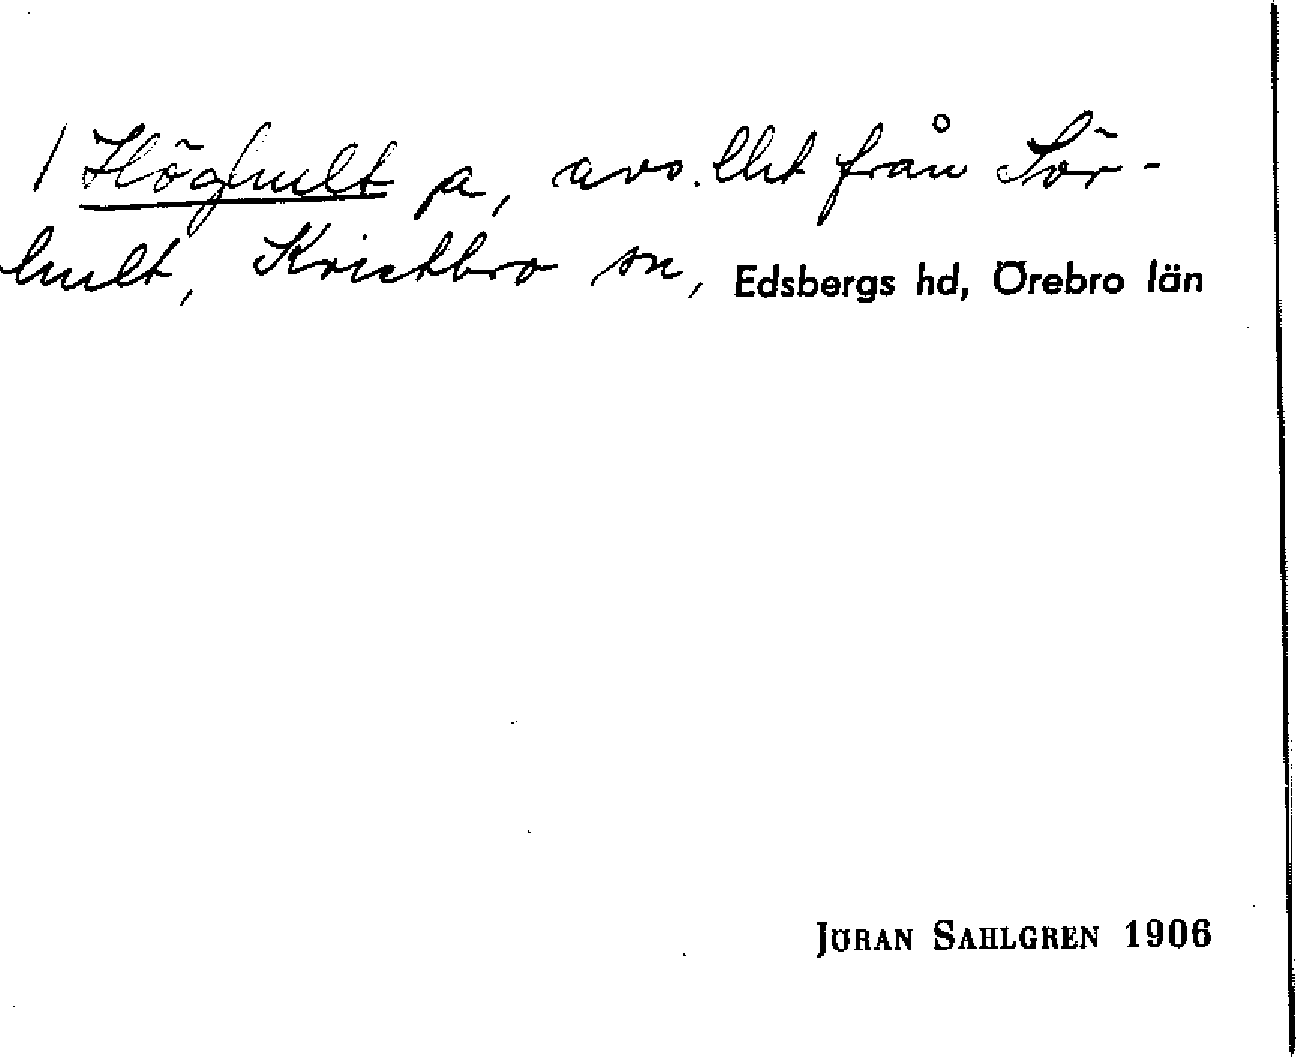 / Höghult p, avs. lht från Sör-
hult, Kvistbro sn, Edsbergs hd, Örebro län
JÖRAN SAHLGREN 1906